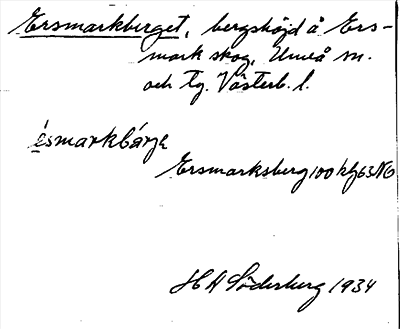 Ersmarkberget, bergshöjd å Ers-
mark skog, Umeå sn.
och tg. Västerb. l.
ésmarkbárjə
Ersmarksberg 100 kbl 63 NO
H A Söderberg 1934